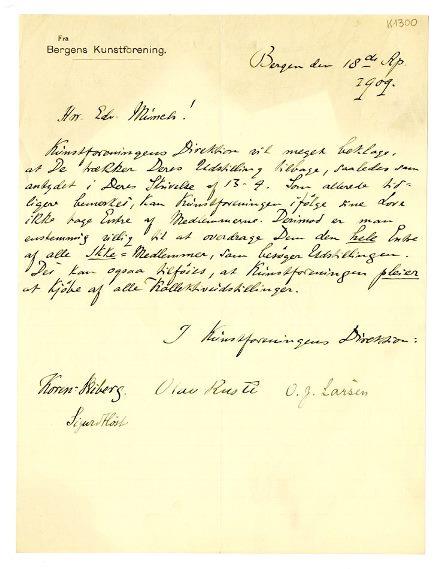 K1300
Fra
Bergens Kunstforening.
Bergen den 18de Ap.
1909.
Hr. Edv. Münch!
Kunstforeningens Direktion vil meget beklage,
at De trækker Deres Udstilling tilbage, saaledes som
antydet i Deres Skrivelse af 13-4. Som allerede tid-
ligere bemerket, kan Kunstforeningen ifølge sine Love
ikke tage Entre af Medlemmerne. Derimod er man
enstemmig villig til at overdrage Dem den hele Entre
af alle Ikke-Medlemmer, som besøger Udstillingen.
Det kan ogsaa tilføies, at Kunstforeningen pleier
at kjøbe af alle Kollektivudstillinger.
I Kunstforeningens Direktion:
Koren-Wiberg. Olav Rusti O. J. Larsen
Sigurd Høst